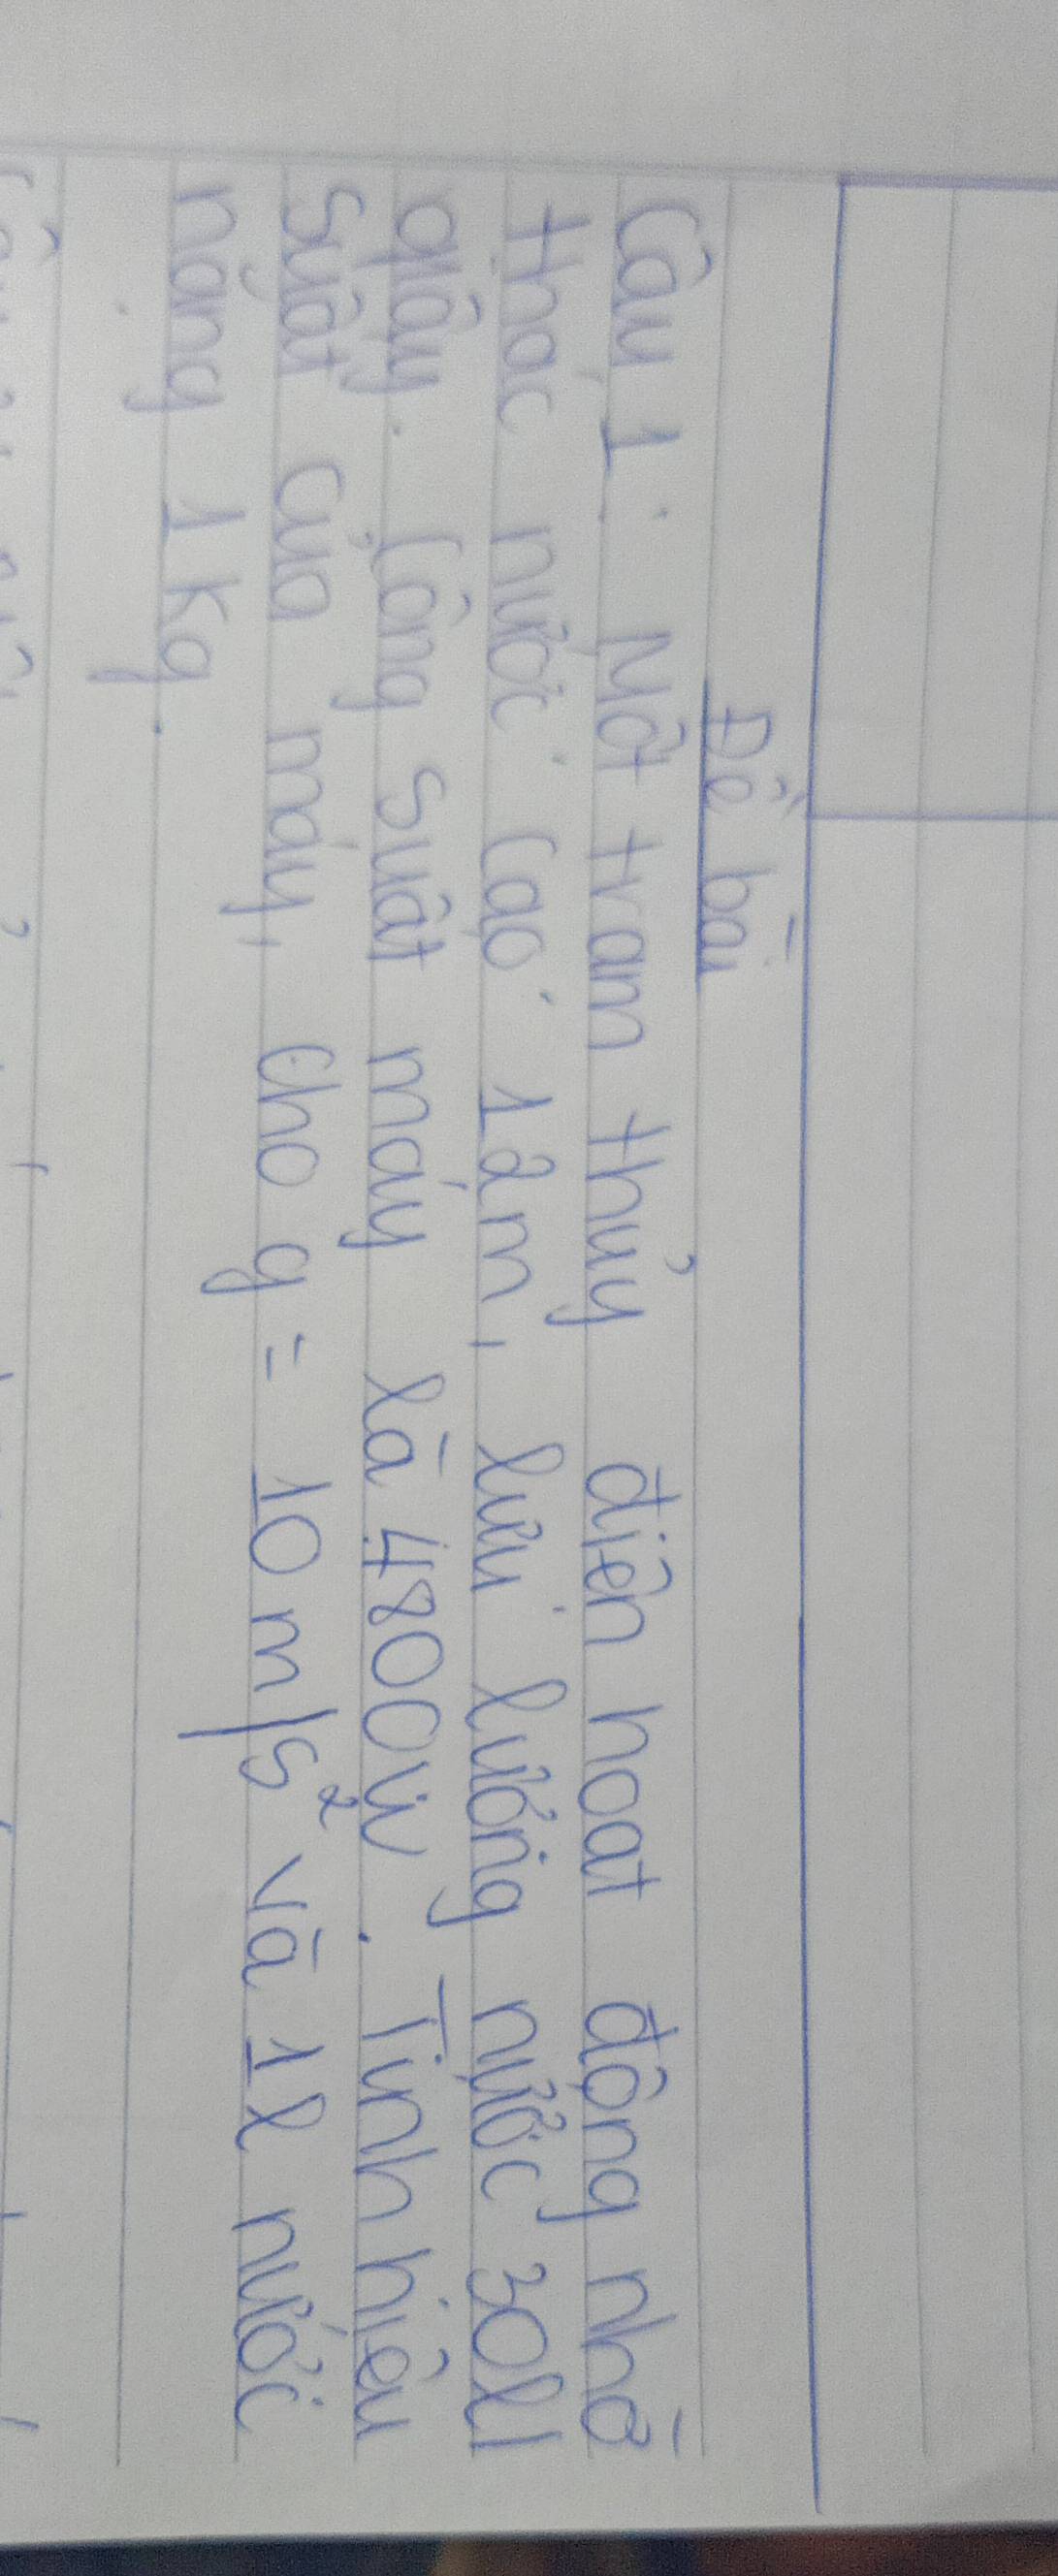 Đề bài
Câu 1: Một trạm thủy điện hoạt động nhờ
thác nước cao 12m, lưu lượng nước 30l/
giây. Công suất máy là 4800W. Tính hiệu
suất của máy, cho g = 10 m/s² và 1l nước
nặng 1kg.